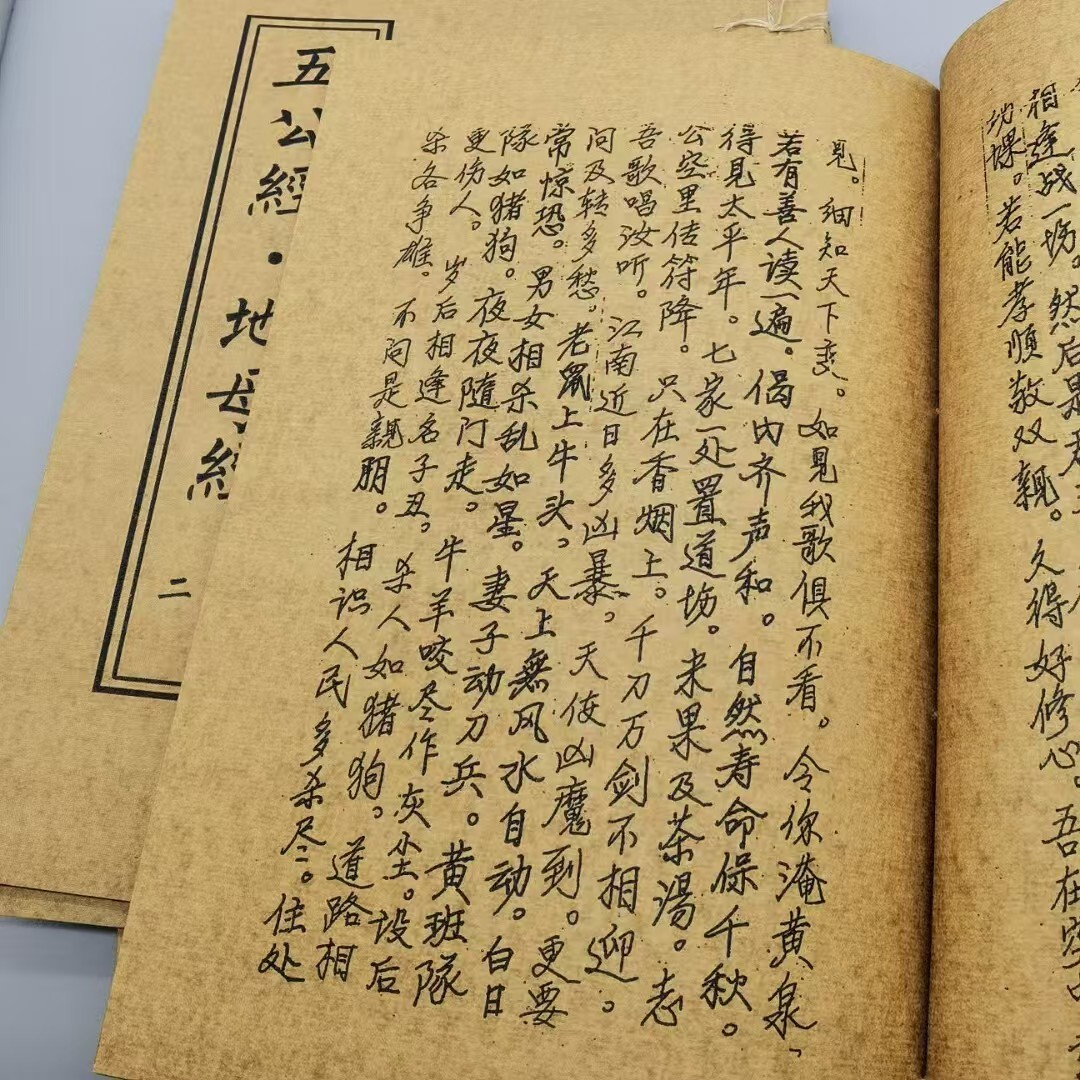 相逢战一场。然后是
若能孝順敬双親。久得好修心。吾在空
見。细知天下变。如見我歌俱不看。令你淹黄泉、
若有善人读一遍。偈内齐声和。自然寿命保千秋。
得見太平年。七家一处置道场。来果及茶湯。志
公空里传符降。只在香烟上。千刀万剑不相迎。
吾歌唱汝听。江南近日多凶暴。天使凶魔到。更要
问及转多愁。老鼠上牛头。天上無风水自动。白日
常惊恐。男女相杀乱如星。妻子动刀兵。黄班隊
隊如猪狗。夜夜随门走。牛羊咬尽作灰尘。设后
更伤人。岁后相逢名子丑。杀人如猪狗。道路相
杀各争雄。不问是親朋。相识人民多杀尽。住处
五公經·地母經
二